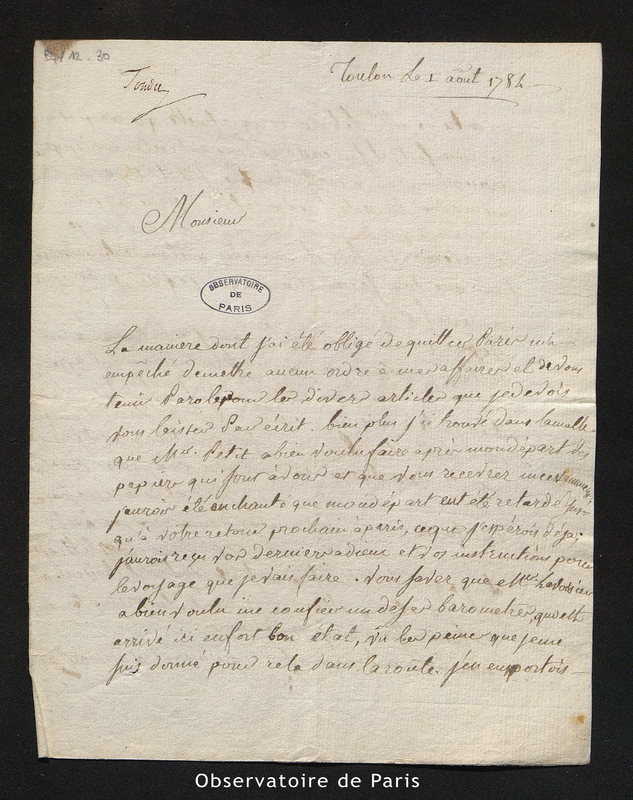 B4/12-30
Tondu
Toulon Le 1 août 1784
Monsieur
OBSERVATOIRE
DE
PARIS
La maniere dont j'ai été obligé de quitter Paris m'a
empêché de mettre aucun ordre à mes affaires et de vous
tenir Parole pour les divers articles que je devois
vous laisser Par écrit. bien plus j'ai trouvé dans la malle
que Mr. Petit a bien voulu faire après mon départ des
papiers qui sont à vous et que vous recevrez incessamment
j'aurois été enchanté que mon départ eut été retardé jus-
qu'à votre retour prochain à paris, ce que j'espérois déja;
j'aurois reçu vos derniers adieux et vos instructions pour
le voyage que je vais faire. Vous savez que Mr. Lavoisier
a bien voulu me confier un de ses barometres, qui est
arrivé ici en fort bon état, vu les peines que je me
suis donné pour cela dans la route. j'en emportois
Observatoire de Paris